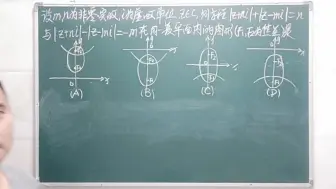 设m,n为非零实数,i为虚数单位,z∈C,则方程|z+ni|+|z-mi|=n
与|z+ni|-|z-mi|=-m在同一复平面内的图形(F₁,F₂为焦点)是
(A) (B) (C) (D)